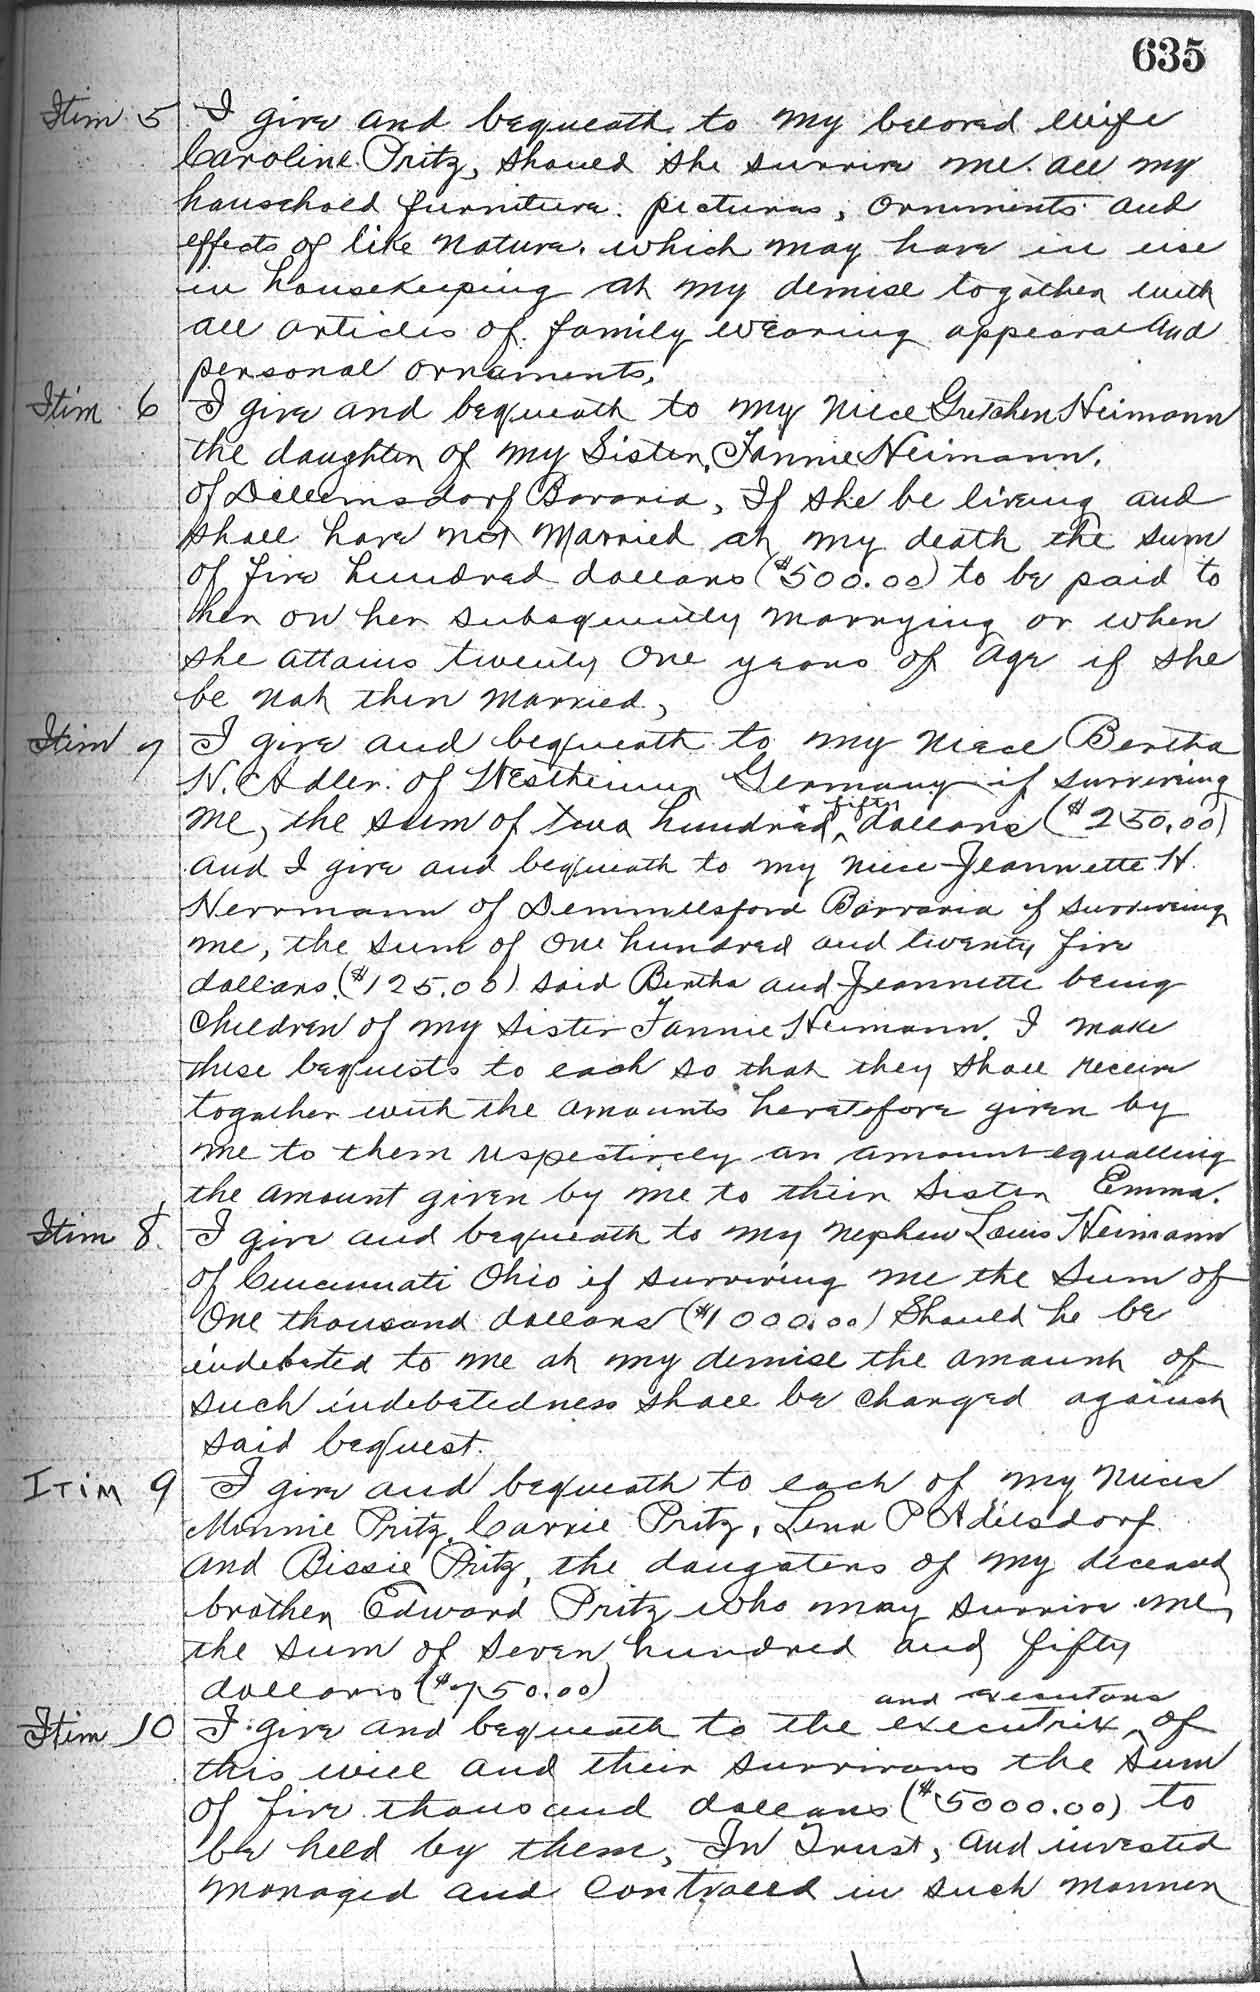 635
Itim 5 I give and bequeath to my beloved wife
Caroline Pritz, should she survive me. all my
household furniture. pictures, orniments and
effects of like nature. which may have in use
in housekeeping at my demise together with
all articles of family wearing apperal and
personal ornaments,
Itim 6 I give and bequeath to my niece Gretchen Heimann
the daughter of my Sister, Fannie Heimann.
of Bavaria, If she be living and
shall have not married at my death the sum
of five hundred dollars ($500.00) to be paid to
her on her subsequently marrying or when
she attains twenty one years of age if she
be not then married,
Itim 7 I give and bequeath to my niece Bertha
N. Adler. of Westheim Germany if surviving
me, the sum of two hundred ^fifty dollars ($250.00)
and I give and bequeath to my niece Jeannette H.
Herrmann of Bavraria if surviving
me, the sum of one hundred and twenty five
dollars. ($125.00) said Bertha and Jeannette being
children of my sister Fannie Heimann. I make
these bequests to each so that they shall receive
together with the amounts heretofore given by
me to them respectively an amount equalling
the amount given by me to their sister Emma.
Itim 8. I give and bequeath to my nephew Louis Heimann
of Cincinnati Ohio if surviving me the sum of
One thousand dollars ($1000.00) Should he be
indebted to me at my demise the amount of
such indebetedness shall be charged against
said bequest.
Itim 9 I give and bequeath to each of my nieces
Minnie Pritz, Carrie Pritz, Lena P Adlesdorf
and Bissie Pritz, the daugsters of my deceased
brother Edward Pritz who may survive me,
the sum of seven hundred and fifty
dollars ($750.00)
Itim 10 I give and bequeath to the executrix ^and executors of
this will and their survivors the sum
of five thousand dollars ($5000.00) to
be held by them, In Trust, and invested
managed and controlled in such manner